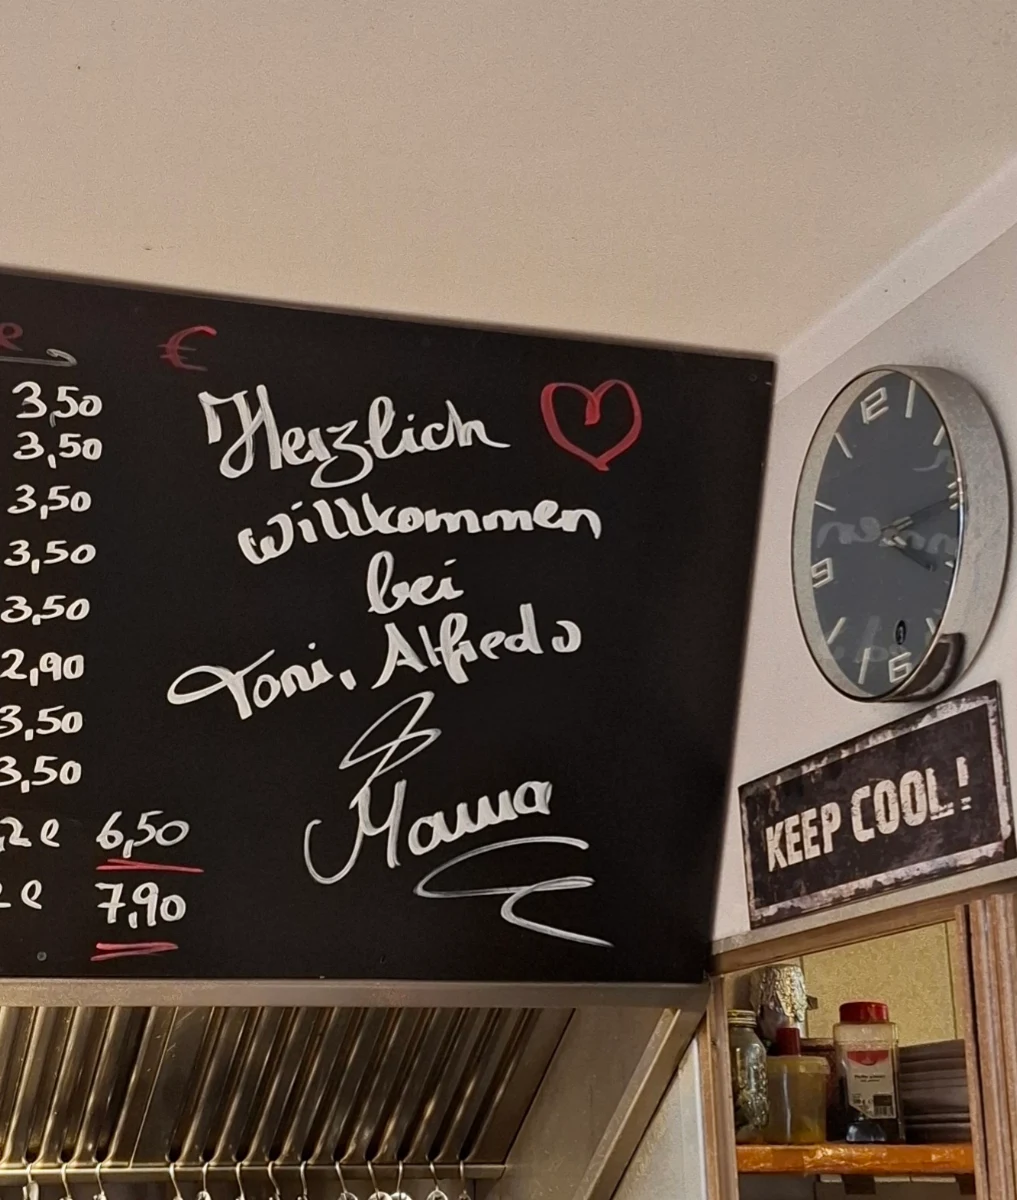 €
3,50
3,50
3,50
3,50
3,50
2,90
3,50
3,50
6,50
7,90
Herzlich
willkommen
bei
Toni, Alfredo
&
Mama
9
6
KEEP COOL!